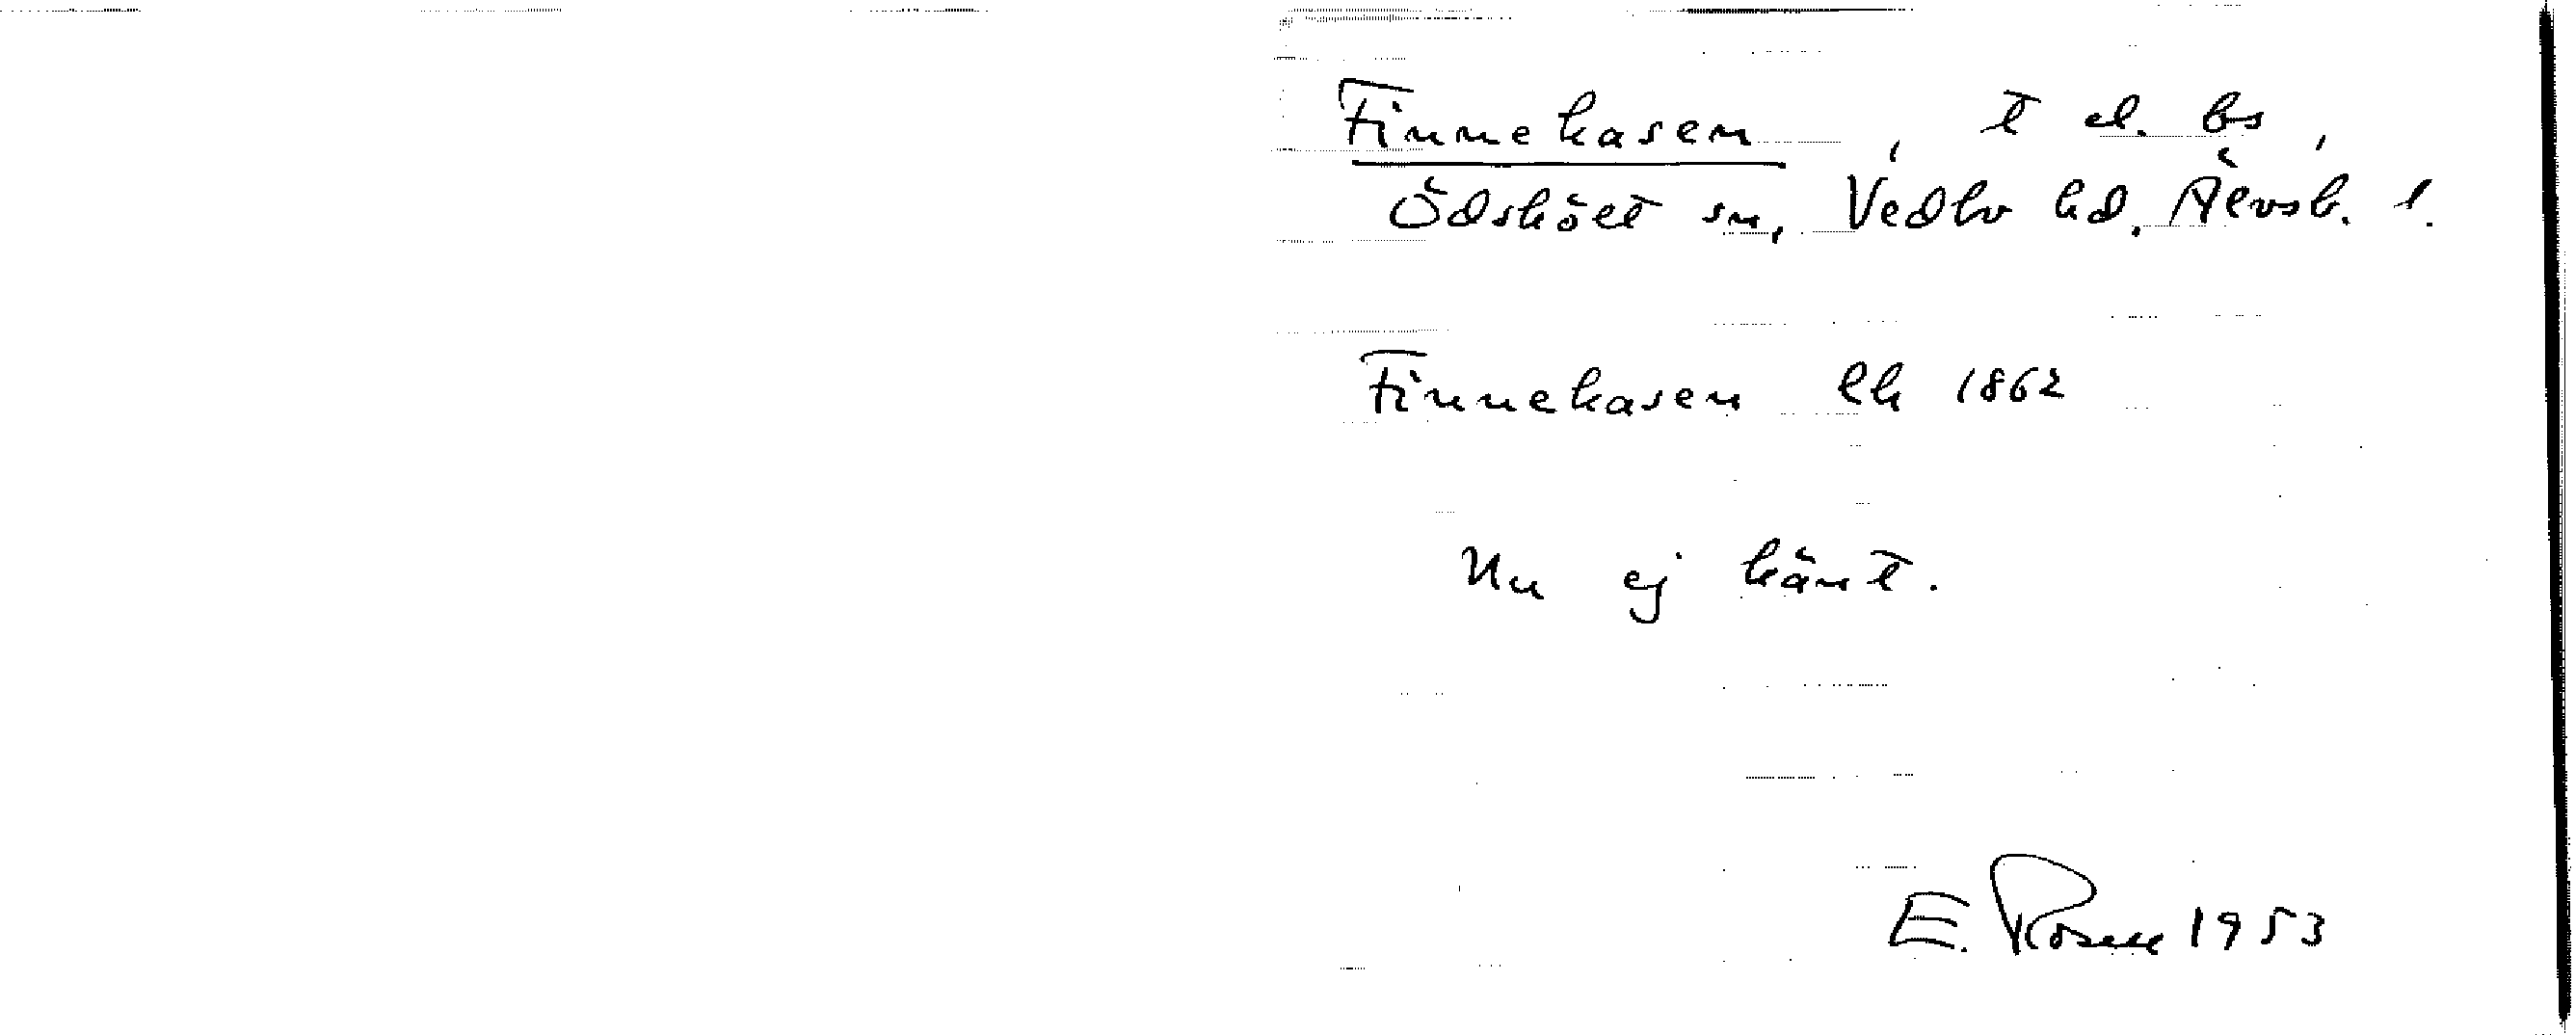 Finnekasen, t el. bs,
Ödskölt sn, Vedbo hd, Älvsb. l.
Finnekasen lh 1862
Nu ej känt.
E. Rosell 1953